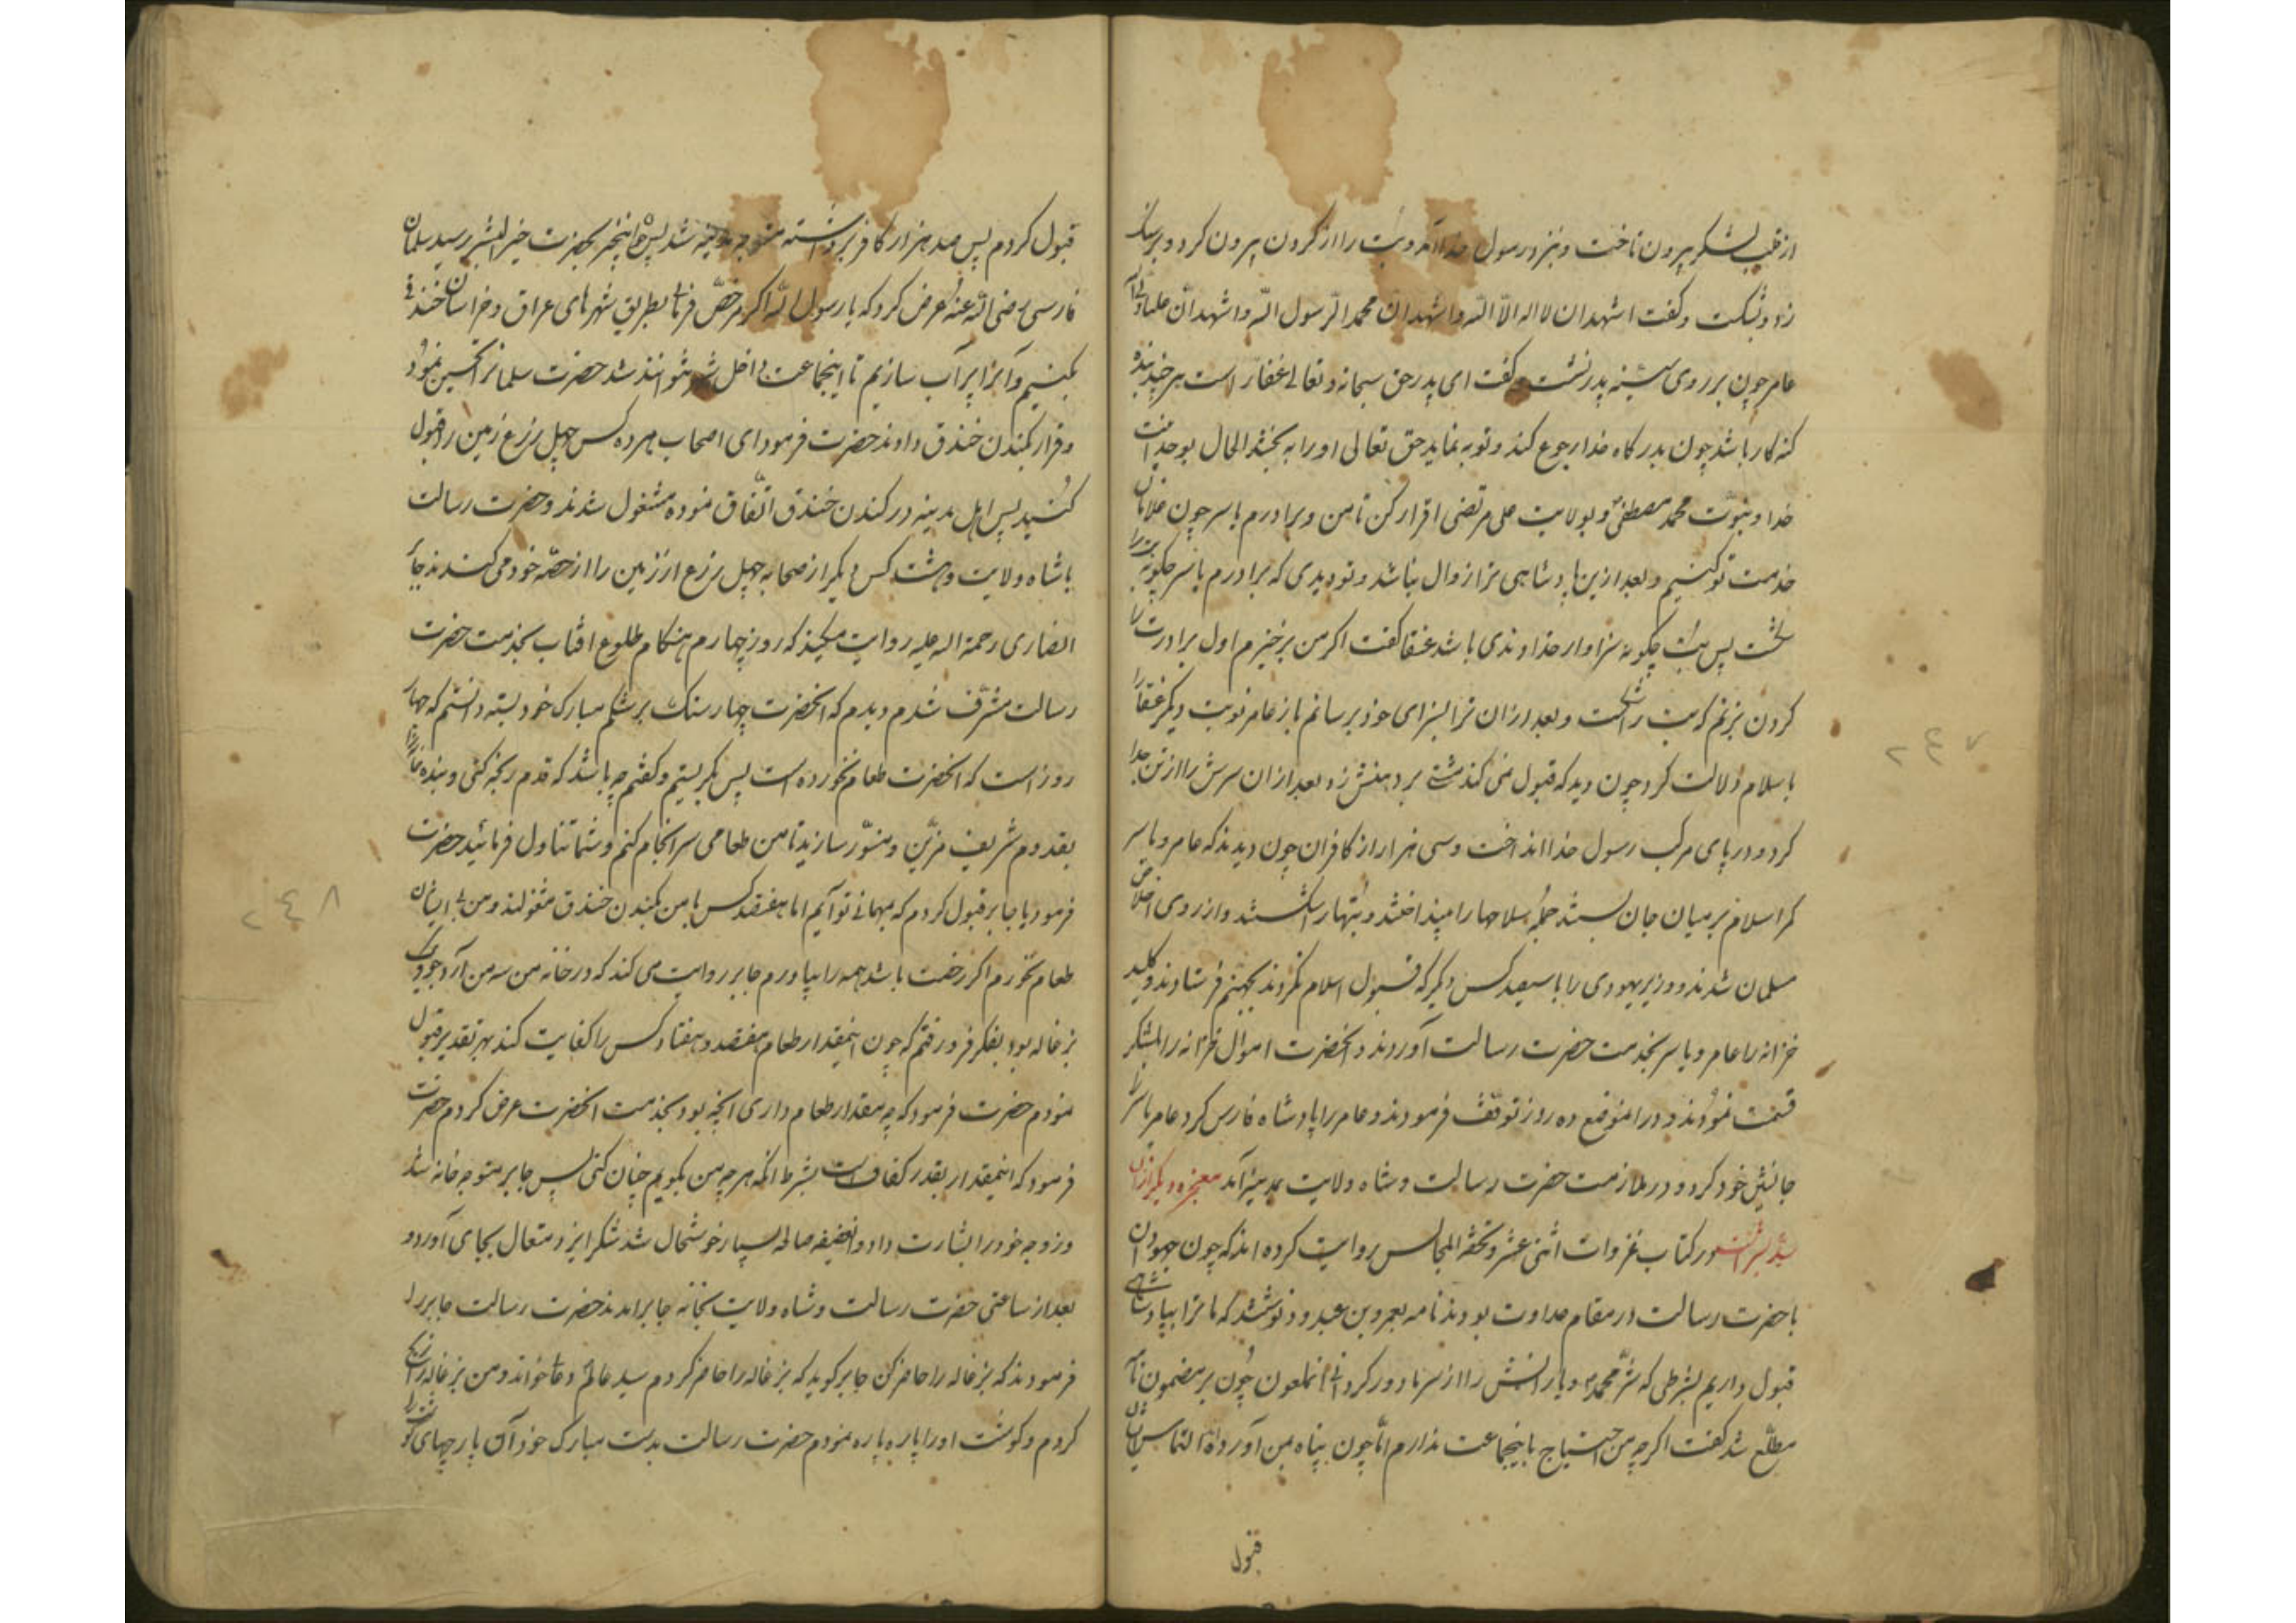 از قلب لشکر بیرون تاخت و بنزد رسول خدا آمد و بت را از کردن بیرون کرد و بر سنک
زد و بشکست و کفت اشهد ان لا اله الا الله و اشهد ان محمدا رسول الله و اشهد ان علیا ولی الله
عامر چون بر روی سینه پدر نشست و کفت ای پدر حق سبحانه و تعالی غفار است هر چند بنده
کنه کار باشد چون بدرکاه خدا رجوع کند و توبه نماید حق تعالی او را به بخشد الحال بوحدانیت
خدا و نبوت محمد مصطفی و بولایت علی مرتضی اقرار کن تا من و برادرم یاسر چون غلامان
خدمت تو کنیم و بعد ازین پادشاهی ترا زوال نباشد و تو دیدی که برادرم یاسر چکونه بت را
شکست پس بت چکونه سزاوار خداوندی باشد عنقا کفت اکر من برخیزم اول برادرت را
کردن بزنم که بت را شکست و بعد از ان ترا بسزای خود برسانم باز عامر نوبت دیکر عنقا را
باسلام دلالت کرد چون دید که قبول نمی کند مشتی بر دهنش زد بعد از ان سرش را از تن جدا
کرد و در پای مرکب رسول خدا انداخت و سی هزار از کافران چون دیدند که عامر و یاسر
کمر اسلام بر میان جان بستند جمله سلاحها را بینداختند و بتها را شکستند و از روی اخلاص
مسلمان شدند و وزیر یهودی را با سیصد کس دیکر که قبول اسلام نکردند بجهنم فرستادند و کلید
خزانه را عامر و یاسر بخدمت حضرت رسالت آوردند و انحضرت اموال خزانه را بلشکر
قسمت نمودند و در انموضع ده روز توقف فرمودند و عامر را پادشاه فارس کرد عامر یاسر را
جانشین خود کرد و در ملازمت حضرت رسالت و شاه ولایت بمدینه آمد معجزه دیکر از ان
سید بشر انست در کتاب غزوات اثنی عشر و تحفة المجالس روایت کرده اند که چون جهودان
با حضرت رسالت در مقام عداوت بودند نامه بعمرو بن عبدود نوشتند که ما ترا بپادشاهی
قبول داریم بشرطی که شر محمد و یارانش را از سر ما دور کردانی انملعون چون بر مضمون نامه
مطلع شد کفت اکرچه من احتیاج باینجماعت ندارم اما چون پناه بمن آورده اند التماس ایشان
قبول
قبول کردم پس صد هزار کافر برداشته متوجه مدینه شد پس چون اینخبر بحضرت خیر البشر رسید سلمان
فارسی رضی الله عنه عرض کرد که یا رسول الله اکر مرخص فرمائی بطریق شهرهای عراق و خراسان خندق
بکنیم و آنرا پر آب سازیم تا اینجماعت داخل شهر نتوانند شد حضرت سلمانرا تحسین نمود
و قرار بکندن خندق دادند حضرت فرمود ای اصحاب هر ده کس چهل زرع زمین را قبول
کنید پس اهل مدینه در کندن خندق اتفاق نموده مشغول شدند و حضرت رسالت
با شاه ولایت و هشت کس دیکر از صحابه چهل زرع از زمین را از حصه خود می کندند جابر
انصاری رحمة الله علیه روایت میکند که روز چهارم هنکام طلوع افتاب بخدمت حضرت
رسالت مشرف شدم دیدم که انحضرت چهار سنک بر شکم مبارک خود بسته دانستم که چهار
روز است که انحضرت طعام نخورده است پس بکریستم و کفتم چه باشد که قدم رنجه کنی و بنده خانه را
بقدوم شریف مزین و منور سازید تا من طعامی سرانجام کنم و شما تناول فرمائید حضرت
فرمود یا جابر قبول کردم که بمهمانی تو آیم اما هفتصد کس با من بکندن خندق مشغولند و من بی ایشان
طعام نخورم اکر رخصت باشد همه را بیاورم جابر روایت می کند که در خانه من سه من آرد جو و یک
بزغاله بود بفکر فرو رفتم که چون اینمقدار طعام هفتصد و هفتاد کس را کفایت کند بهر تقدیر قبول
نمودم حضرت فرمود که چه مقدار طعام داری انچه بود بخدمت انحضرت عرض کردم حضرت
فرمود که اینمقدار بقدر کفاف است بشرط انکه هر چه من بکویم چنان کنی پس جابر متوجه خانه شد
و زوجه خود را بشارت داد و انضعیفه صالحه بسیار خوشحال شد شکر ایزد متعال بجای آورد و
بعد از ساعتی حضرت رسالت و شاه ولایت بخانه جابر امدند حضرت رسالت جابر را
فرمودند که بزغاله را حاضر کن جابر کوید که بزغاله را حاضر کردم سید عالم دعا خواند و من بزغاله را
کردم و کوشت او را پاره پاره نمودم حضرت رسالت بدست مبارک خود آن پارچهای کوشت را